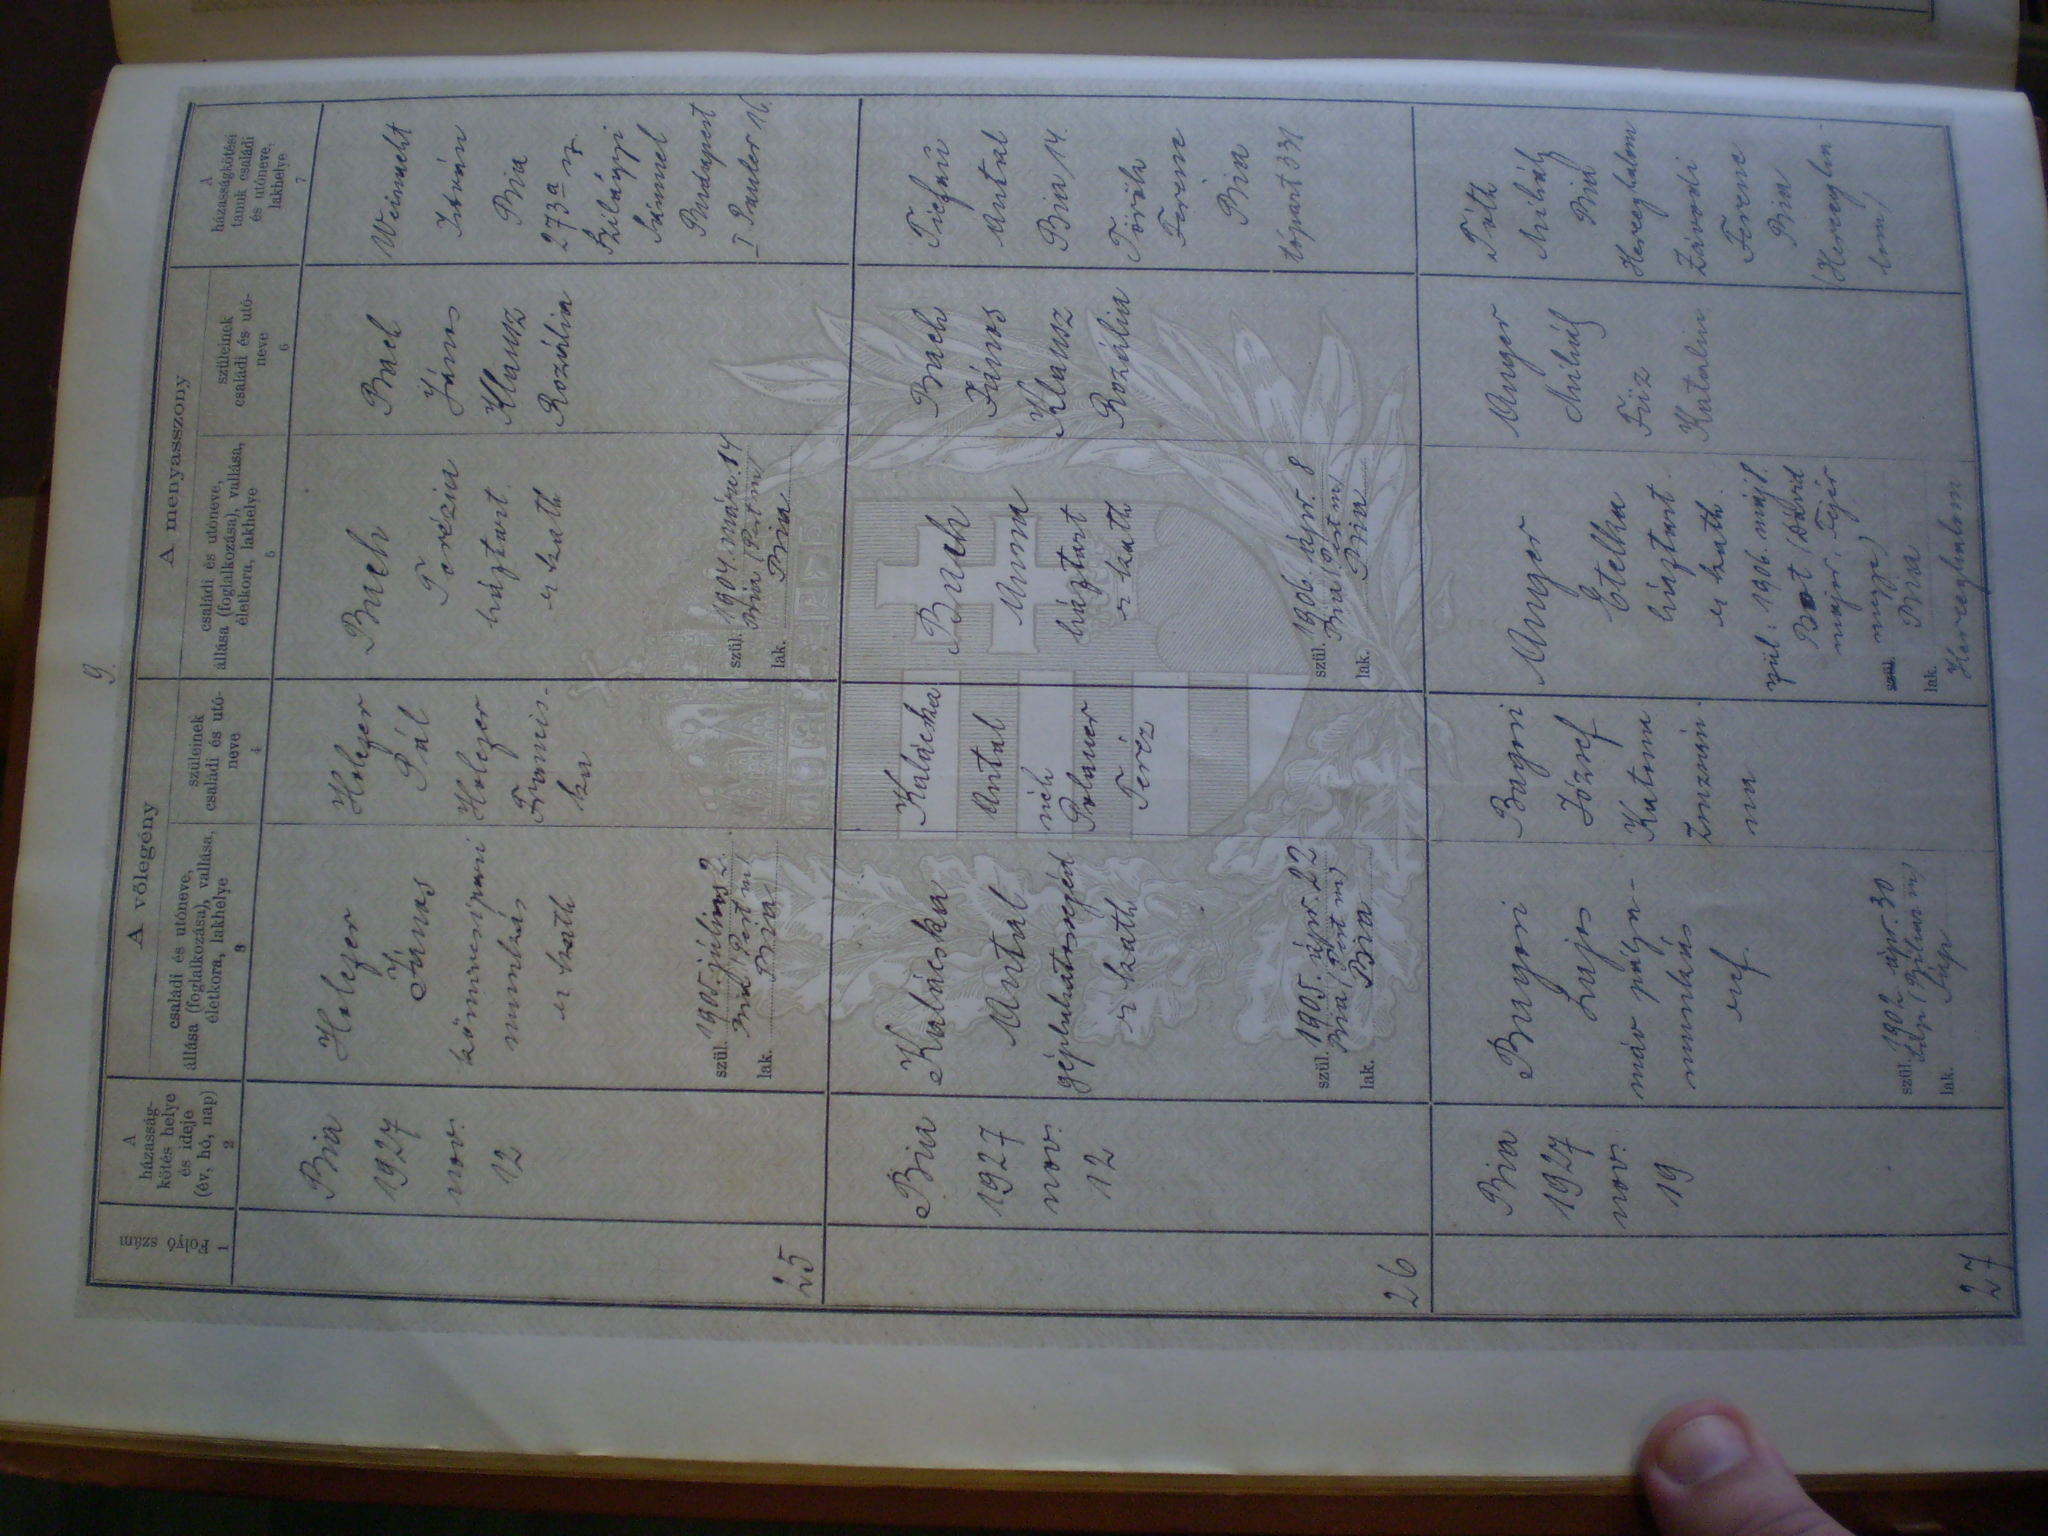 9.
A vőlegény
A menyasszony
Folyó
szám
1
A
házasság-
kötés helye
és ideje
(év, hó, nap)
2
családi és utóneve,
állása (foglalkozása), vallása,
életkora, lakhelye
3
szüleinek
családi és utó-
neve
4
családi és utóneve,
állása (foglalkozása), vallása,
életkora, lakhelye
5
szüleinek
családi és utó-
neve
6
A
házasságkötési
tanuk családi
és utóneve,
lakhelye
7
25
Bia
1927
nov.
12
Holczer
János
kőművesipari
munkás
r kath
szül. 1905. július 2
Bia (Pest m)
lak. Bia
Holczer
Pál
Holczer
Francis-
ka
Bach
Terézia
háztart.
r kath
szül. 1904. márc. 14
Bia (Pest m)
lak. Bia
Bach
János
Klausz
Rozália
István
Bia
273a
Szilágyi
Sámuel
Budapest
I Pauler 16.
26
Bia
1927
nov.
12
Kalácska
Antal
r kath
szül. 1905. ápr. 22
Bia (Pest m)
lak. Bia
Kalácska
Antal
néh
Polauer
Teréz
Bach
Anna
háztart
r kath
szül. 1906. ápr. 8
Bia (Pest m)
lak. Bia
Bach
János
Klausz
Rozália
Antal
Bia 14.
Török
Ferenc
Bia
tópart 331
27
Bia
1927
nov.
19
Bagosi
Lajos
máv pálya-
munkás
ref.
szül. 1902. ápr. 30
lak.
Bagosi
József
Katona
Zsuzsán-
na
Unger
Etelka
háztart.
r kath.
szül: 1906. máj. 8.
major, Fejér
megye)
szül. Bia
lak.
Herceghalom
Unger
Mihály
Füz
Katalin
Tóth
Mihály
Bia
Herceghalom
Závodi
Ferenc
Bia
(Herczegha-
lom)